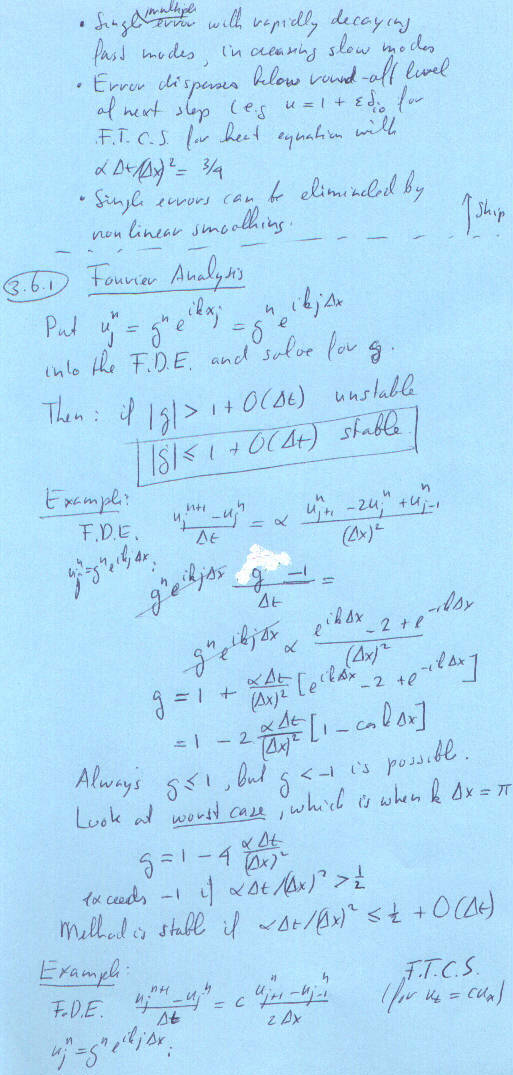 multiple
• Single error with rapidly decaying
fast modes, increasing slow modes
• Error disperses below round-off level
at next step (e.g u = 1 + εδ_{i0} for
F.T.C.S. for heat equation with
αΔt/(Δx)² = 3/4
• Single errors can be eliminated by
non linear smoothing.
↑ Skip
3.6.1 Fourier Analysis
Put u_j^n = g^n e^{ikx_j} = g^n e^{ikjΔx}
into the F.D.E. and solve for g.
Then: if |g| > 1 + O(Δt) unstable
|g| ≤ 1 + O(Δt) stable
Example:
F.D.E. (u_j^{n+1} - u_j^n)/Δt = α (u_{j+1}^n - 2u_j^n + u_{j-1}^n)/(Δx)²
u_j^n = g^n e^{ikjΔx}:
g^n e^{ikjΔx} (g - 1)/Δt =
g^n e^{ikjΔx} α (e^{ikΔx} - 2 + e^{-ikΔx})/(Δx)²
g = 1 + αΔt/(Δx)² [e^{ikΔx} - 2 + e^{-ikΔx}]
= 1 - 2 αΔt/(Δx)² [1 - cos kΔx]
Always g ≤ 1, but g < -1 is possible.
Look at worst case, which is when kΔx = π
g = 1 - 4 αΔt/(Δx)²
exceeds -1 if αΔt/(Δx)² > 1/2
Method is stable if αΔt/(Δx)² ≤ 1/2 + O(Δt)
Example: F.T.C.S.
F.D.E. (u_j^{n+1} - u_j^n)/Δt = c (u_{j+1}^n - u_{j-1}^n)/(2Δx) (for u_t = cu_x)
u_j^n = g^n e^{ikjΔx}: